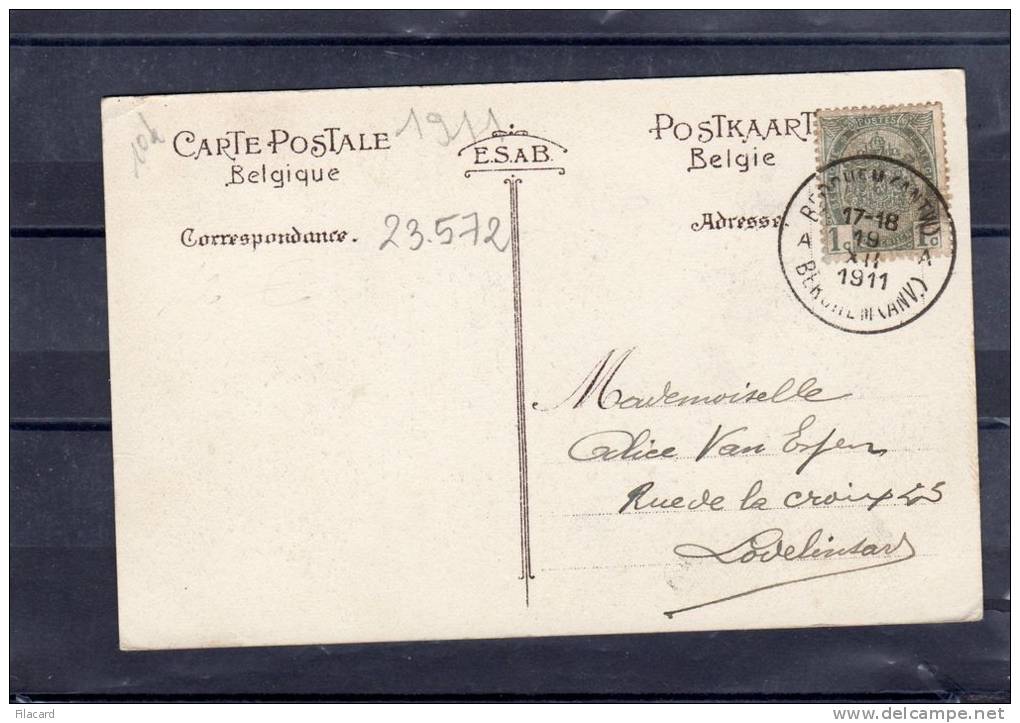 10d
CARTE POSTALE
Belgique
1911
E.S.aB.
POSTKAART
Belgie
Correspondance.
23.572
Adresse
POSTES
1c 1c
BERCHEM (ANTW.)
17-18
A 19 A
XII
1911
BERCHEM (ANV.)
Mademoiselle
Alice Van
Rue de la croix
Lodelinsart
Filacard